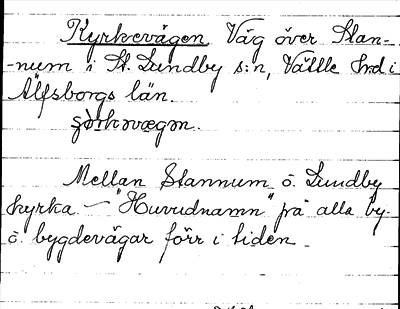 Kyrkevägen Väg över Stan-
-num i St. Lundby s:n, Vättle hrd i
Älfsborgs län.
Mellan Stannum o. Lundby
kyrka. — "Huvudnamn" på alla by-
o. bygdevägar förr i tiden.